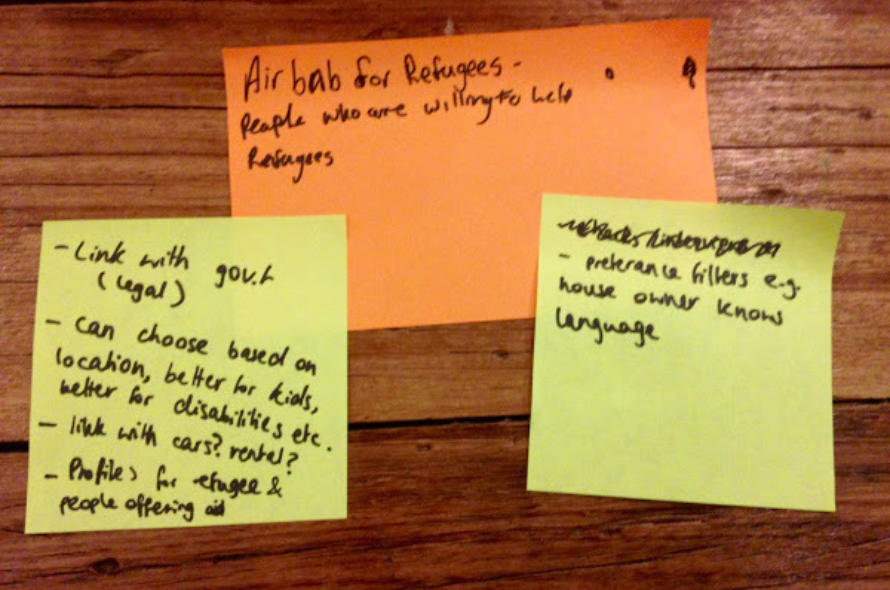 Airbab for Refugees -
People who are willing to help
Refugees
- Link with gov.t
(legal)
- can choose based on
location, better for kids,
better for disabilities etc.
- link with cars? rental?
- Profiles for refugee &
people offering aid
- preferance filters e.g.
house owner knows
language